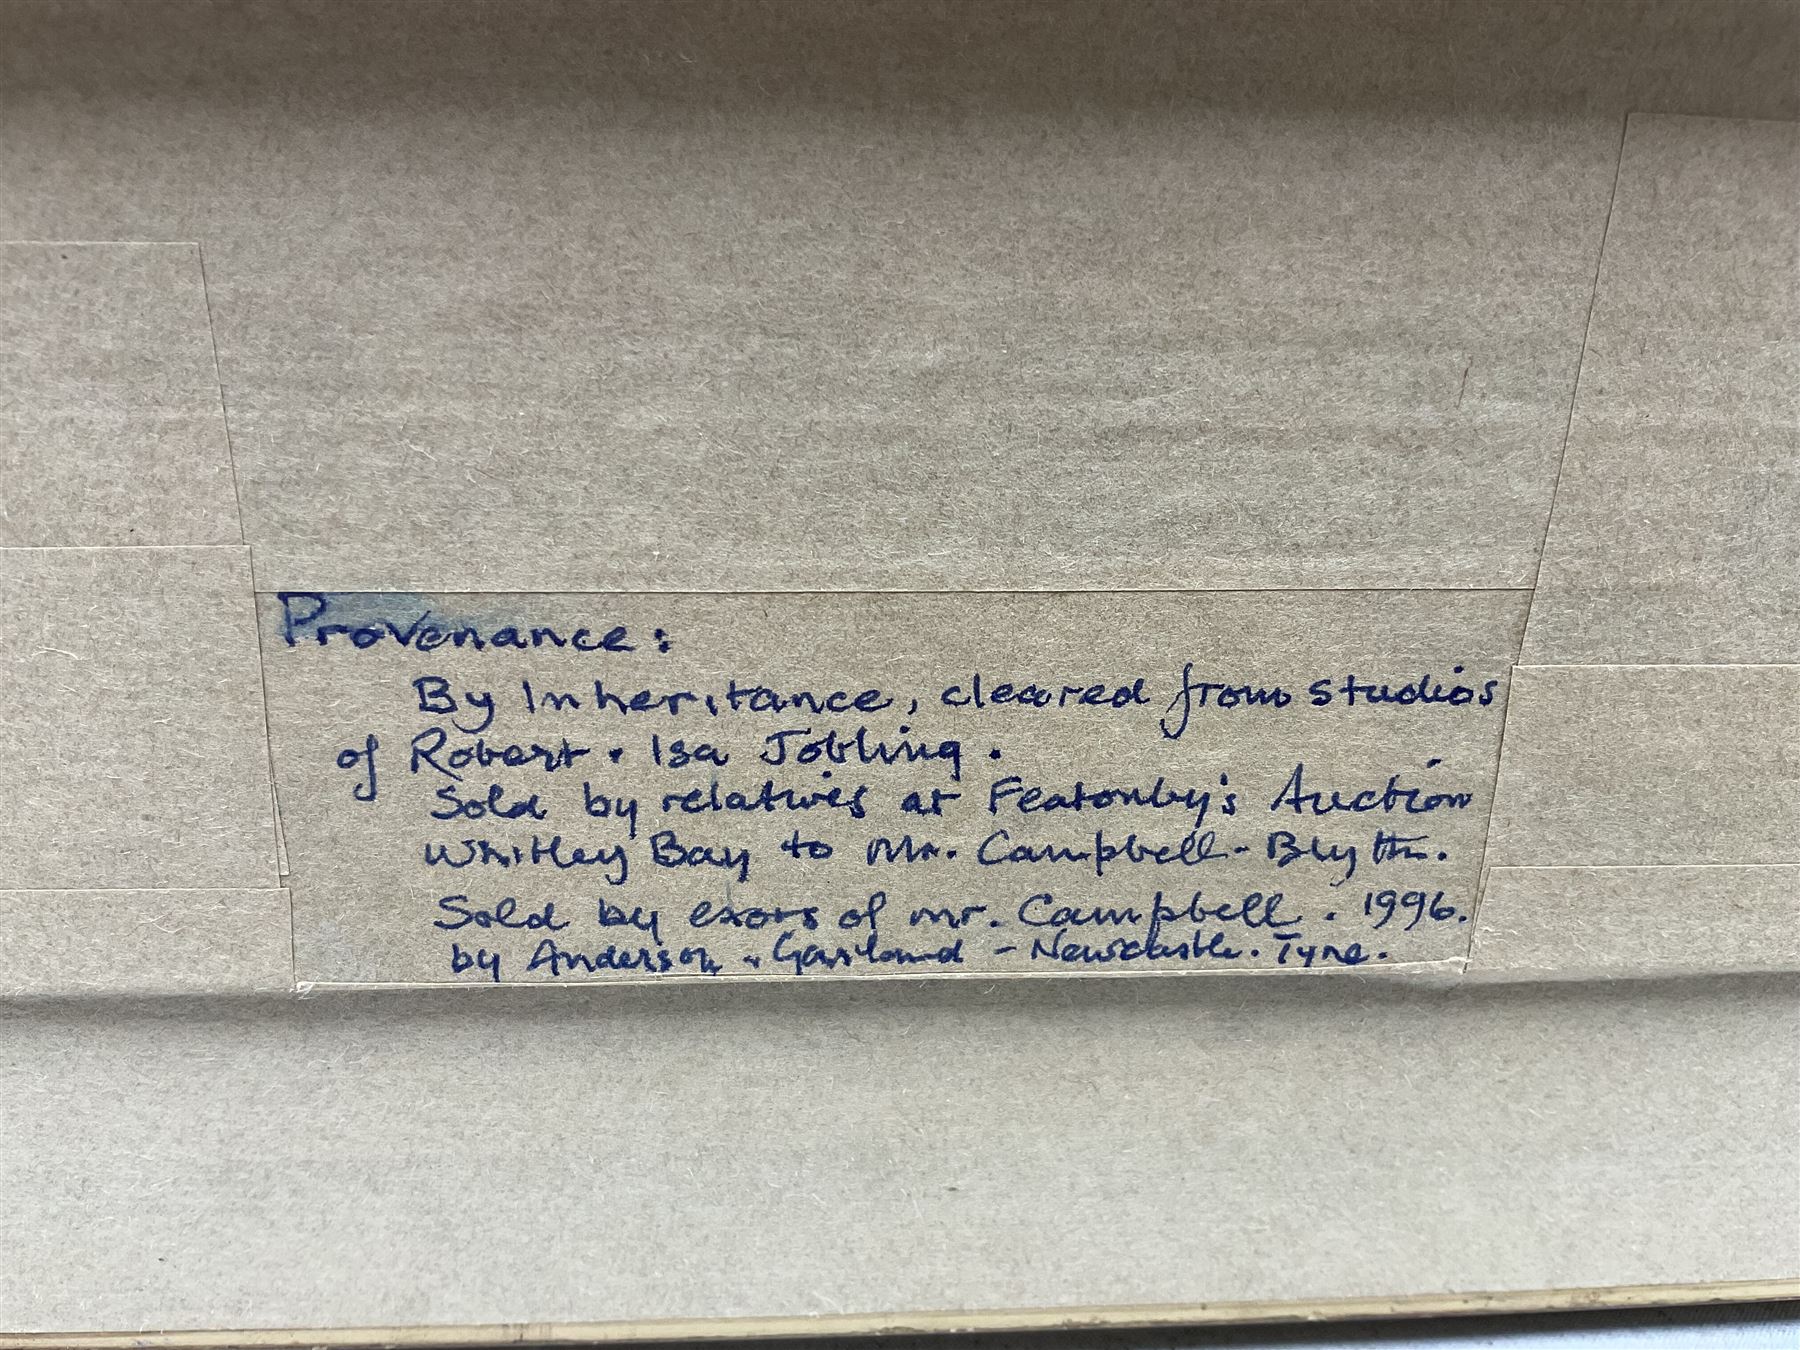 Provenance:
By Inheritance, cleared from studios
of Robert • Isa Jobling.
Sold by relatives at Featonby's Auction
Whitley Bay to Mr. Campbell - Blyth.
Sold by exors of Mr. Campbell. 1996.
by Anderson & Garland - Newcastle. Tyne.